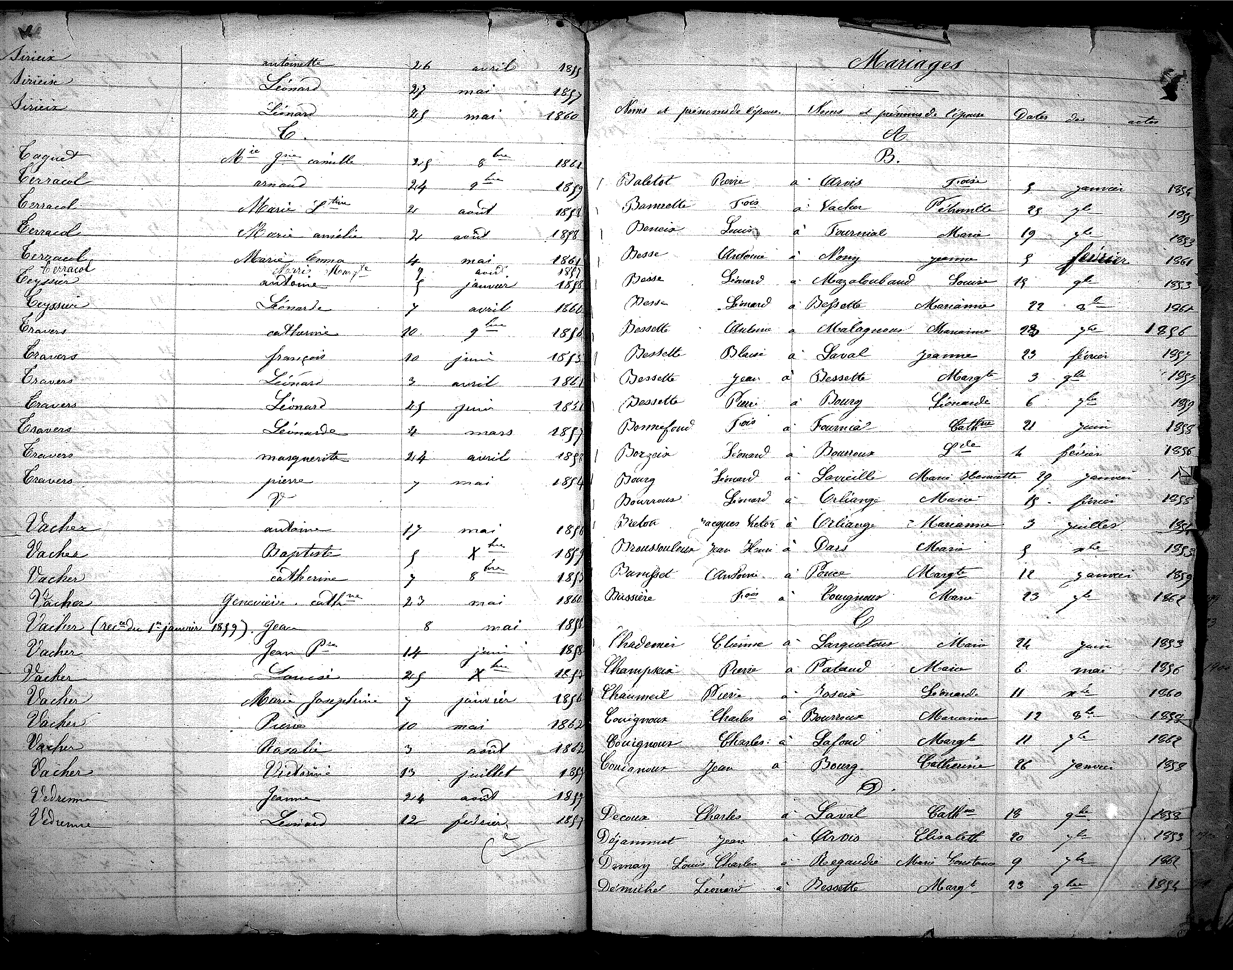 Sirieix antoinette 26 avril 1855
Sirieix Léonard 27 mai 1857
Sirieix Léonard 25 mai 1860
T.
Taguet Mie camille 25 8bre 1861
Terracol arnaud 24 9bre 1859
Terracol Marie 2 août 1858
Terracol Marie amélie 2 août 1858
Terracol Marie Emma 4 mai 1861
Terracol Marie 9 avril 1857
Teyssier antoine 5 janvier 1858
Teyssier Léonarde 7 avril 1860
Travers catherine 10 9bre 1856
Travers françois 10 juin 1853
Travers Léonard 3 avril 1861
Travers Léonard 25 juin
Travers Léonarde 4 mars 1857
Travers marguerite 24 avril 1858
Travers pierre 7 mai 1854
V
Vacher antoine 17 mai 1856
Vacher Baptiste 5 Xbre 1857
Vacher catherine 7 8bre 1853
Vacher Geneviève cathne 23 mai 1860
Vacher (recd du 1er janvier 1859). Jean 8 mai 1858
Vacher Jean Pre 14 juin 1858
Vacher Louise 25 Xbre 1857
Vacher Marie Joséphine 7 janvier 1856
Vacher Pierre 10 mai 1862
Vacher Rosalie 3 août 1862
Vacher Victorine 13 juillet 1857
Vedrenne Jeanne 24 août 1857
Vedrenne Léonard 12 février 1857
Mariages
Noms et prénoms de l'époux. Noms et prénoms de l'épouse Dates des actes
A
B.
Baletot Pierre à Arvis foise 5 janvier 1854
Bannette fois à Vacher Pétronille 25 7bre 1855
Benoix Louis à Fournial Marie 19 7bre 1853
Besse Antoine à Nony jeanne 5 février 1861
Besse Léonard à Mazaloubaud Louise 15 9bre 1853
Besse Léonard à Bessette Marianne 22 8bre 1861
Bessette Antoine à Malagnoux Marianne 28 7bre 1856
Bessette Blaise à Laval jeanne 23 février 1857
Bessette jean à Bessette Margte 3 9bre 1857
Bessette Pierre à Bourg Léonarde 6 7bre 1859
Bonnefond fois à Fournial Cathne 21 juin 1858
Borzeix Léonard à Bourroux Lde 4 février 1856
Bourg Léonard à Lavialle Marie Henriette 29 janvier
Bourroux Léonard à Orliange Marie 15 février 1855
Breton Jacques Victor à Orliange Marianne 3 juillet
Broussouloux Jean Henri à Dars Marie 5 xbre 1853
Antoine à Ponce Margte 12 janvier 1859
Bussière fois à Couignoux Marie 23 7bre 1862
C
Chadenier Etienne à Marie 24 juin 1853
Pierre à Pabaud Marie 6 mai 1856
Chaumeil Pierre à Léonarde 11 xbre 1860
Couignoux Charles à Bourroux Marianne 12 8bre 1852
Couignoux Charles à Lafond Margte 11 7bre 1862
Couignoux Jean à Bourg Catherine 26 janvier 1858
D.
Decoux Charles à Laval Cathne 18 9bre 1858
Déjammet Jean à Arvis Elisabeth 20 7bre 1853
Demay Louis Charles à Regaudie Marie 9 7bre 1861
Demichel Léonard à Bessette Margte 23 9bre 1854